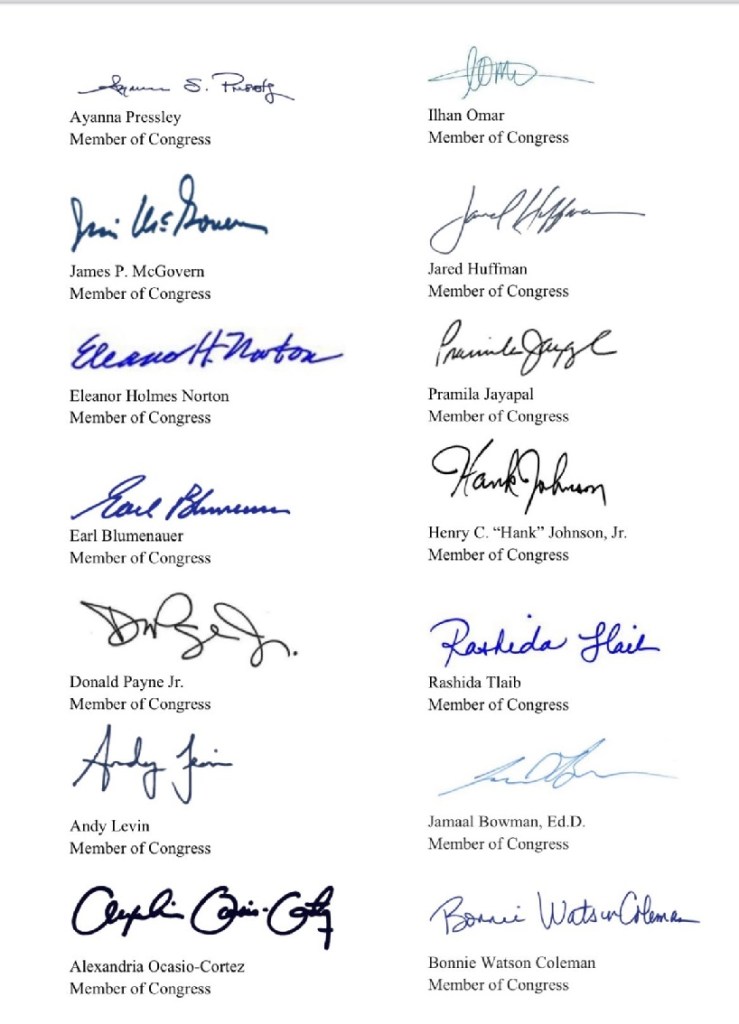 Ayanna S. Pressley
Ayanna Pressley
Member of Congress
Ilhan Omar
Member of Congress
Jim McGovern
James P. McGovern
Member of Congress
Jared Huffman
Jared Huffman
Member of Congress
Eleanor H. Norton
Eleanor Holmes Norton
Member of Congress
Pramila Jayapal
Pramila Jayapal
Member of Congress
Earl Blumenauer
Earl Blumenauer
Member of Congress
Hank Johnson
Henry C. “Hank” Johnson, Jr.
Member of Congress
Donald Payne Jr.
Member of Congress
Rashida Tlaib
Rashida Tlaib
Member of Congress
Andy Levin
Andy Levin
Member of Congress
Jamaal Bowman, Ed.D.
Member of Congress
Alexandria Ocasio-Cortez
Member of Congress
Bonnie Watson Coleman
Bonnie Watson Coleman
Member of Congress